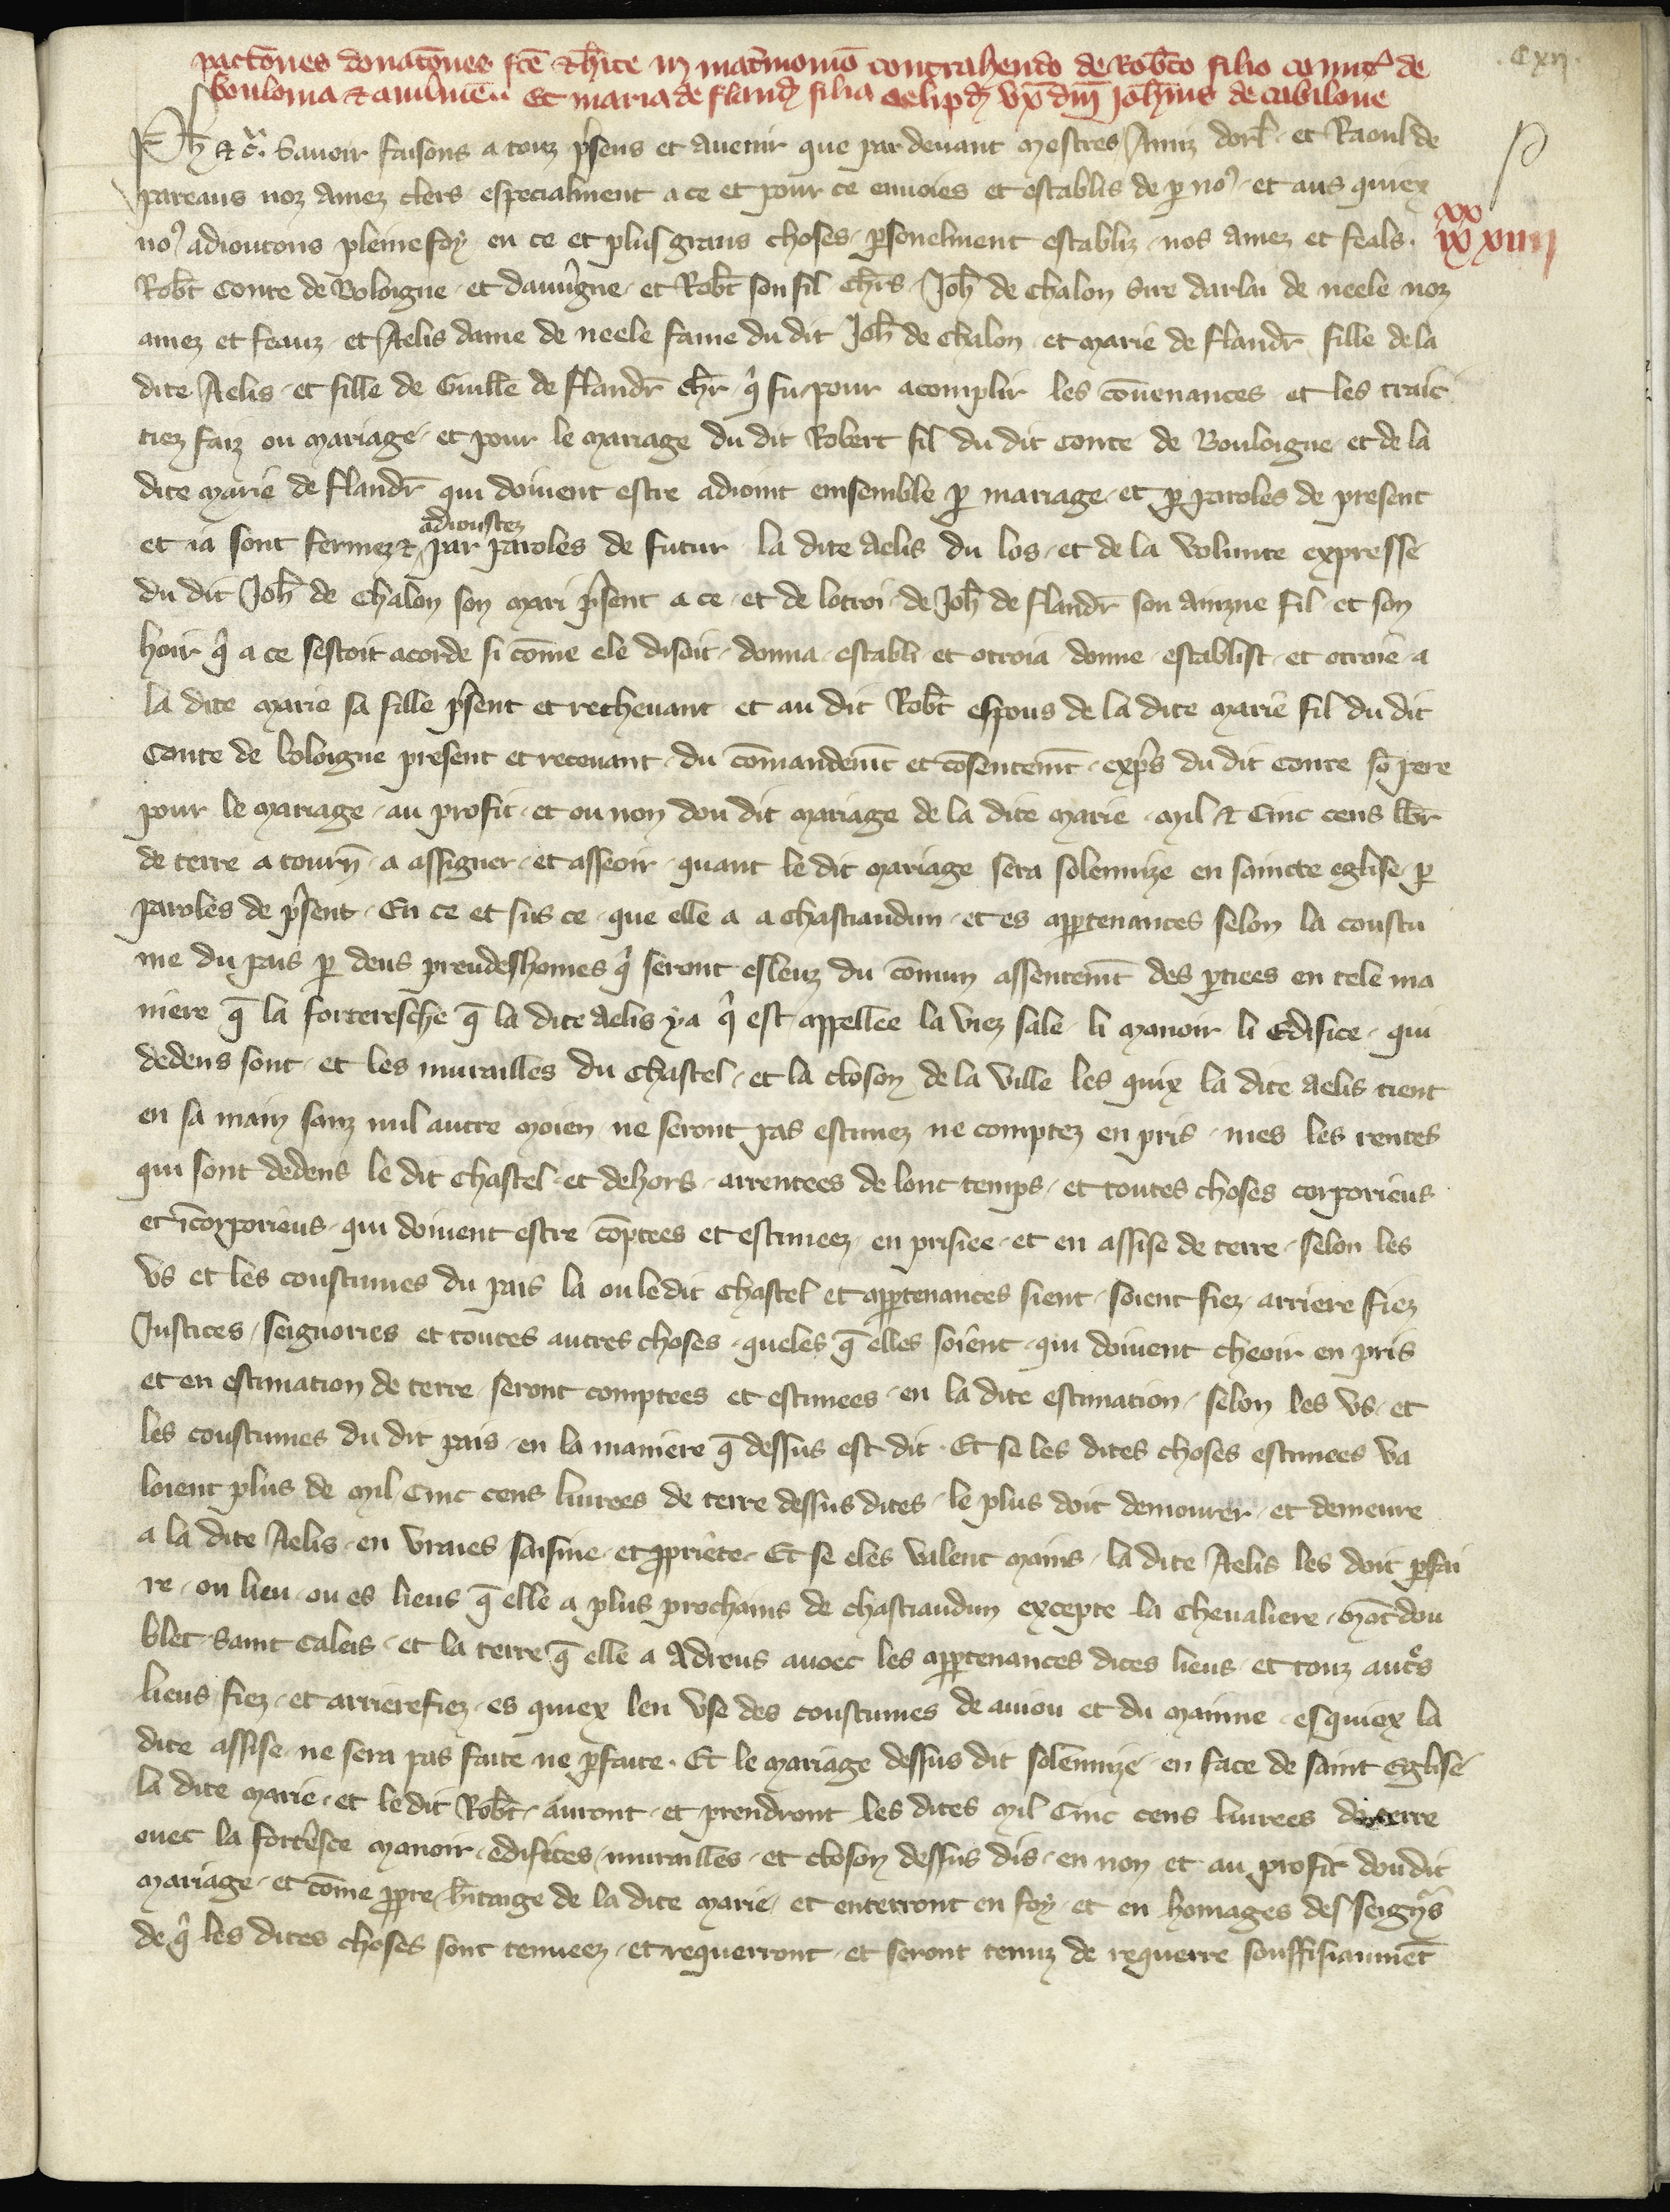 Cxii.
pact̄ones donat̄ones fc̄e & hīte in mat̕monio contrahendo de Rob̄to filio comit̕ de
boulonia & aluernie Et maria de fland̕ filia aelipd̕ vx̕ dn̄i Joh̄nis de cabilone
Ph̄ & c̄. Sauoir faisons a touz p̄sens et auenir que par deuant Mestres Amiz dorl̄ et Raoul de
pareaus noz amez clers especialment a ce et pour ce enuoies et establis de ꝑ noꝰ et aus quiex
noꝰ adioutons pleine foy en ce et plus grans choses ꝑsonelment establiz nos amez et feals.
xx
ix xviii
Rob̄t Conte de Boloigne et dauu̕gne et Rob̄t son fil ch̄rs Joh̄ de chalon Sire darlai de neele noz
amez et feauz et Aelis dame de neele fame du dit Joh̄ de chalon et Marie de flandr̄ fille de la
dite Aelis et fille de Guill̄e de flandr̄ ch̄r q̕ fu pour acomplir les cōuenances et les traic
tiez faiz ou mariage et pour le mariage du dit Robert fil du dit Conte de Bouloigne et de la
dite Marie de flandr̄ qui doiuent estre adioint emsemble ꝑ mariage et ꝑ paroles de present
et ia sont fermez & adioustez par paroles de futur la dite aelis du los et de la volunte expresse
du dit Joh̄ de Chalon son mari p̄sent a ce et de lotroi de Joh̄ de flandr̄ son ainzne fil et son
hoir q̕ a ce sestoit acorde si cōme ele disoit donna establi et otroia donne establist et otroie a
la dite Marie sa fille p̄sent et rechevant et au dit Rob̄t espous de la dite Marie fil du dit
Conte de boloigne present et receuant du cōmandemt̄ et cōsentemt̄ exp̄s du dit Conte sō pere
pour le mariage au profit et ou non dou dit mariage de la dite Marie Mil & Cinc cens lb̄r
de terre a tourn̄ a assigner et asseoir quant le dit mariage sera solennize en saincte eglise ꝑ
paroles de p̄sent En ce et sus ce que elle a a chastiaudun et es apꝑtenances selon la coustu
me du pais ꝑ deus preudeshomes q̕ seront esleuz du cōmun assentemt̄ des ꝑtiees en tele ma
niere q̄ la fortereschе q̄ la dite aelis y a q̕ est appellee la viez sale li manoir li Edifice qui
dedens sont et les murailles du chastel et la closon de la ville les quix la dite aelis tient
en sa main sanz nul autre moien ne seront pas estimez ne comptez en pris mes les rentes
qui sont dedens le dit chastel et dehors arrentees de lonc temps et toutes choses corporieus
et īcorporieus qui doiuent estre cōptees et estimeez en prisiee et en assise de terre selon les
vs et les coustumes du pais la ou ledit chastel et apꝑtenances sient soient fiez arriere fiez
Justices seignories et toutes autres choses queles q̄ elles soient qui doiuent cheoir en pris
et en estimation de terre seront comptees et estimees en la dite estimation selon les vs et
les coustumes du dit pais en la maniere q̄ dessus est dit. Et se les dites choses estimees va
loient plus de Mil Cinc cens liurees de terre dessus dites le plus doit demourer et demeure
a la dite Aelis en vraies saisine et ꝓpriete Et se eles valent mains la dite Aelis les doit ꝑfai
re ou lieu ou es lieus q̄ elle a plus prochains de chastiaudun excepte la Cheualiere Mōtdou
blet Saint Caleis et la terre q̄ elle a Adreus auoec les apꝑtenances dites lieus et touz aut̕s
lieus fiez et arrierefiez es quiex len vse des coustumes de aniou et du mainne esquiex la
dite assise ne sera pas faite ne ꝑfaite. Et le mariage dessus dit solēnnize en face de saint Eglise
la dite Marie et le dit Rob̄t auront et prendront les dites Mil Cinc cens liurees de terre
ouec la fort̕esce manoir edifices murailles et closon dessus dis en non et au profit dou dit
mariage et cōme ꝓpre h̄itaige de la dite Marie et enterront en foy et en homages des seign̕s
de q̕ les dites choses sont tenueez et requerront et seront tenuz de requerre souffisianmēt